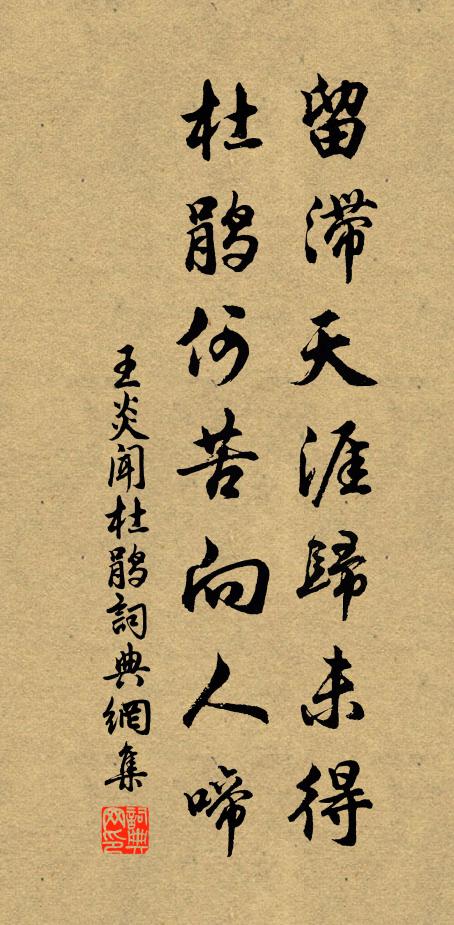 留滞天涯歸未得
杜鹃何苦向人啼
王炎闻杜鹃詞典網集
詞典网印